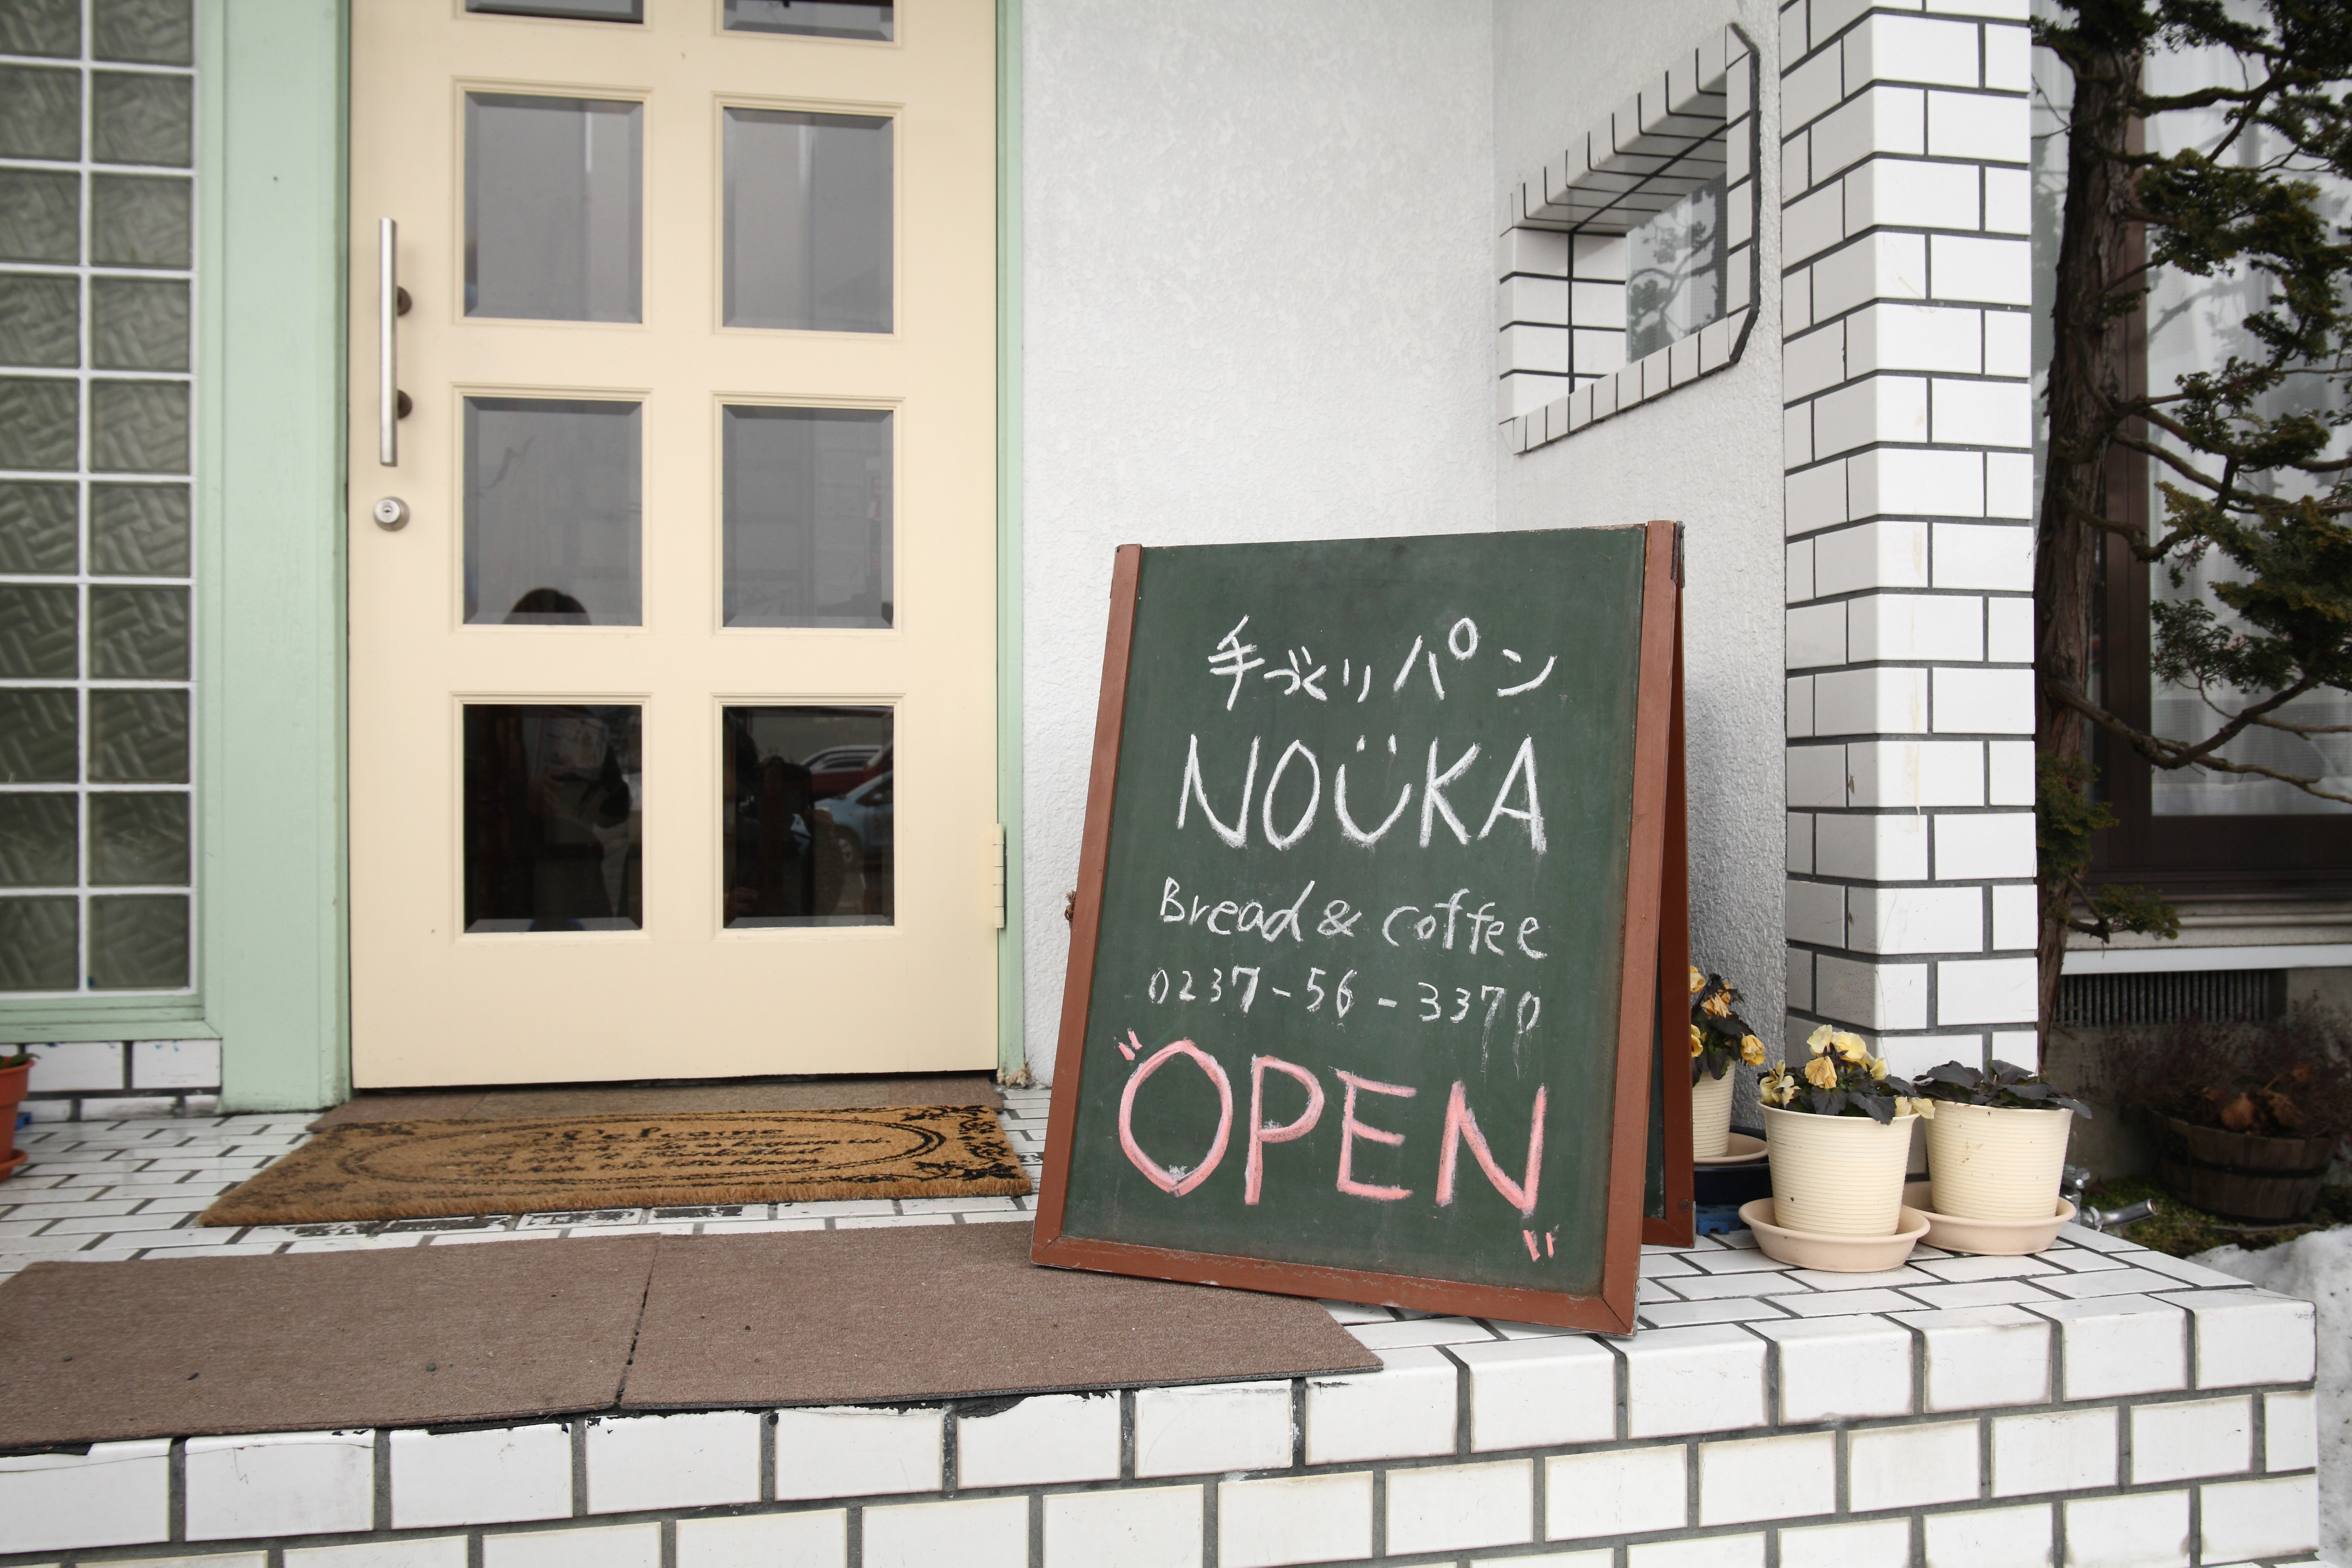 手づくりパン
NOÜKA
Bread & coffee
0237-56-3370
"OPEN"
Welcome